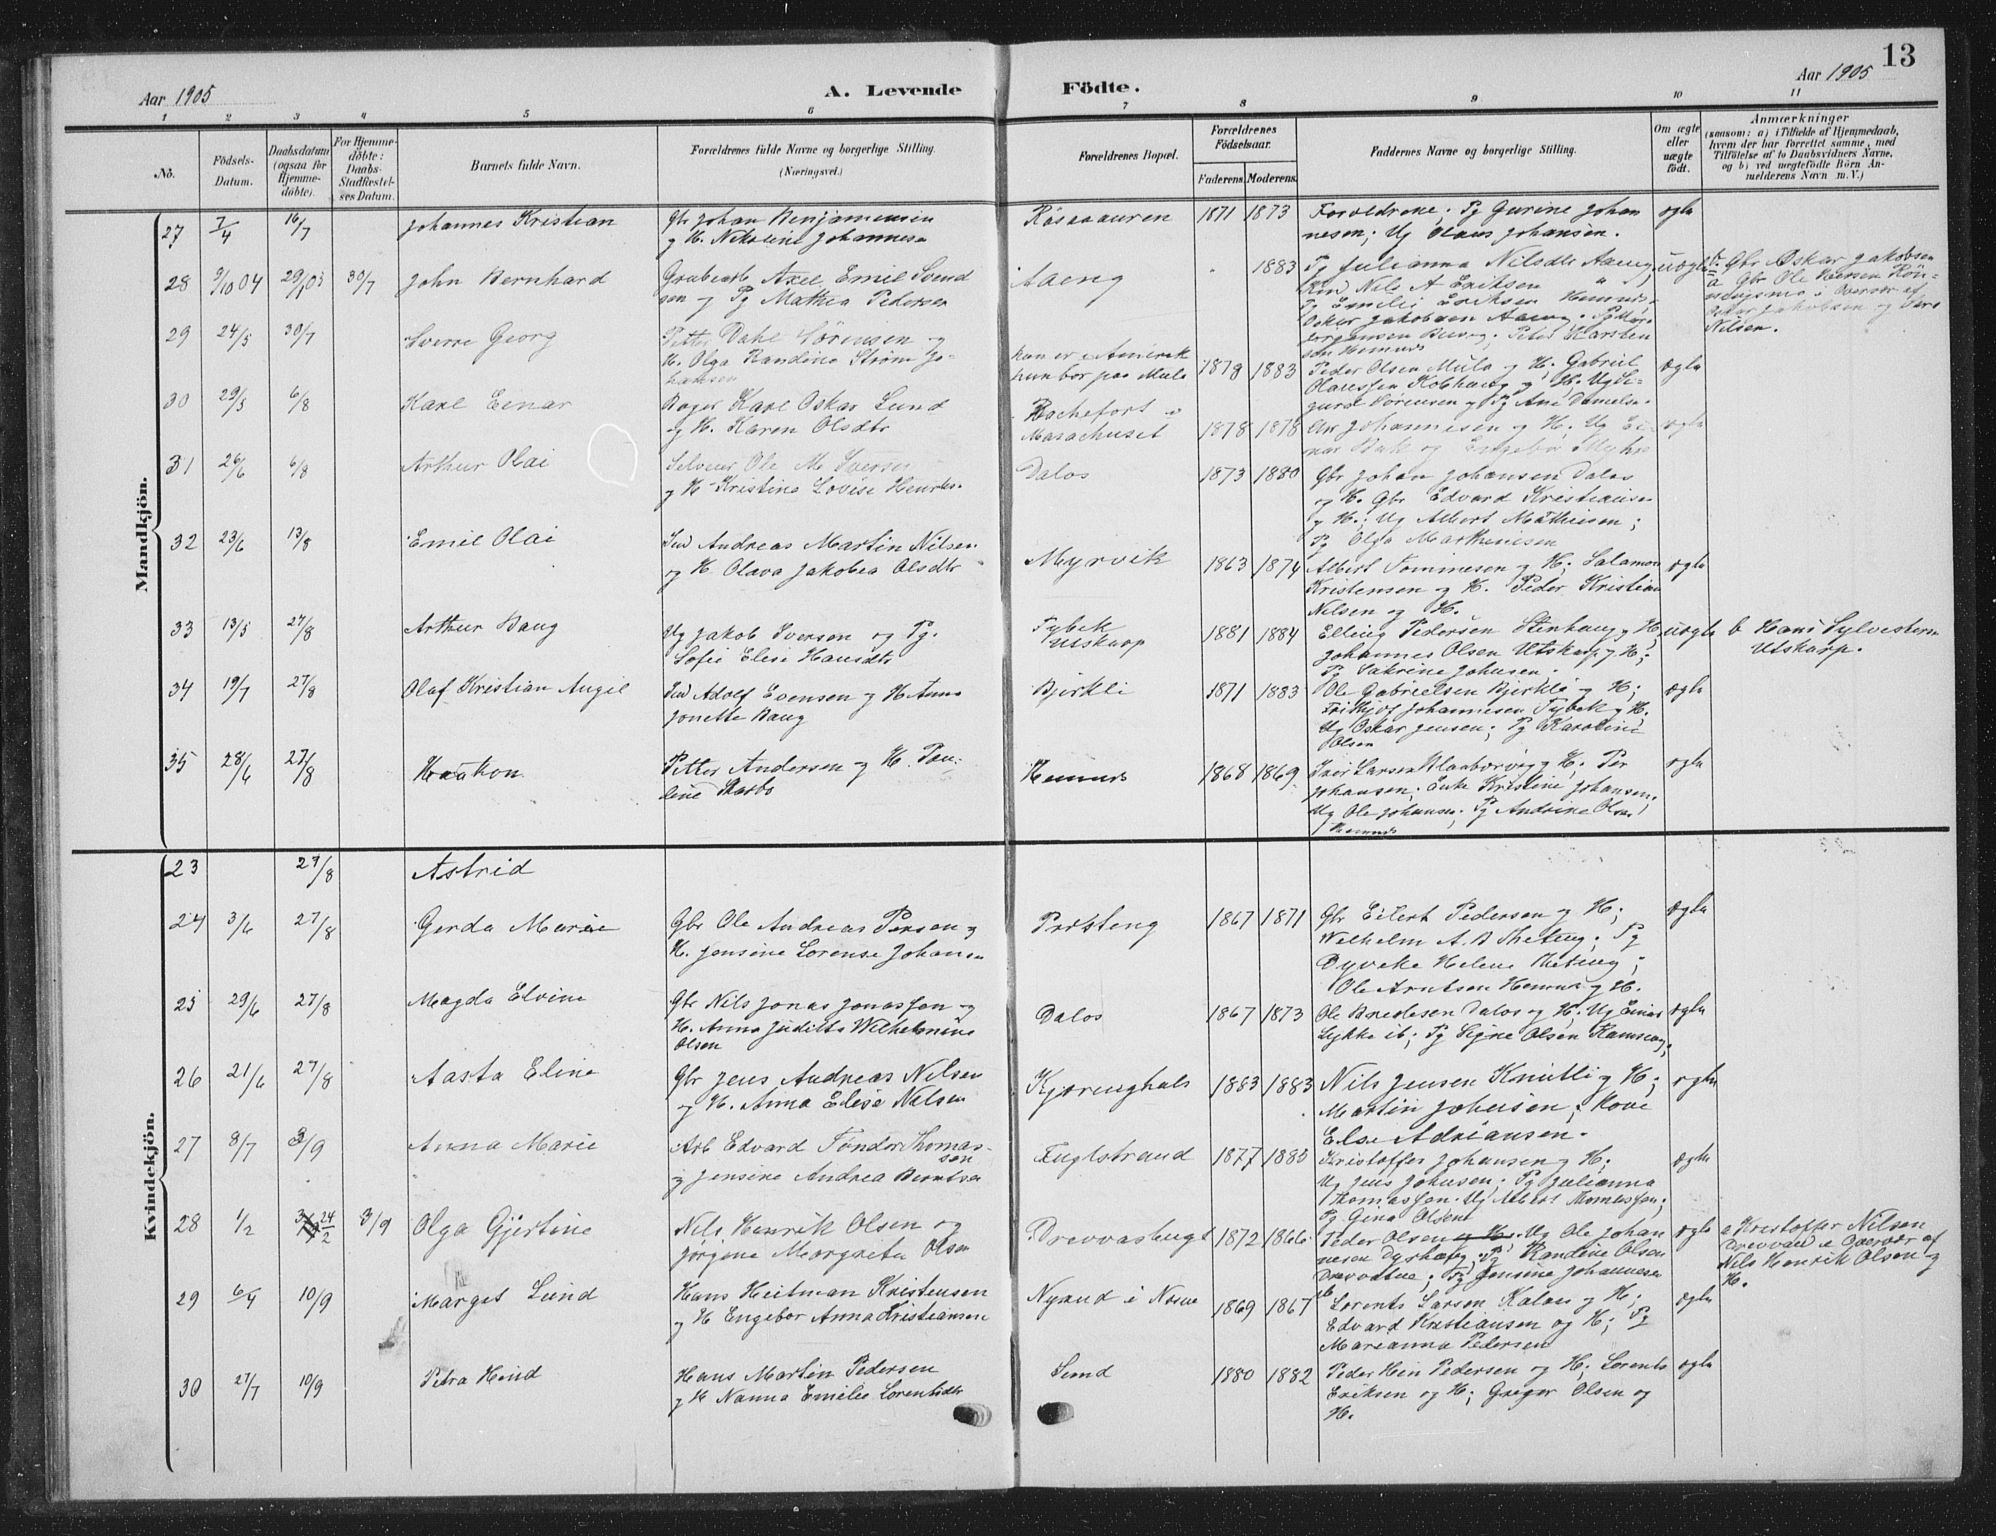 13
Aar 1905
A. Levende
Födte.
Aar 1905
1 2 3 4 5 6 7 8 9 10 11
No.
Födsels-
Datum.
Daabsdatum
(ogsaa for
Hjemme-
döbte).
For Hjemme-
döbte:
Daabs-
Stadfæstel-
ses Datum.
Barnets fulde Navn.
Forældrenes fulde Navne og borgerlige Stilling.
(Næringsvei.)
Forældrenes Bopæl.
Forældrenes
Födselsaar.
Faderens. Moderens.
Faddernes Navne og borgerlige Stilling.
Om ægte
eller
uægte
födt.
Anmærkninger
(saasom: a) i Tilfælde af Hjemmedaab,
hvem der har forrettet samme, med
Tilföielse af to Daabsvidners Navne,
og b) ved uægtefödte Börn An-
melderens Navn m. V.)
Mandkjön.
27 7/4 16/7 Johannes Kristian
Gbr Johan Benjaminsen
og H. Nikoline Johannesen
Røsaauren 1871 1873
Forældrene; Pg Gurine Johan
nesen; Ug Olaus Johansen.
ægte
28 9/10 04 29/1 05 30/7 John Bernhard
Grubearb Axel Emil Svend
sen og Pg Mathea Pedersen
Aaeng 1883
Pg Julianna Nilsdtr Aaeng
Nils A Eriksen
Pg Emelie Eriksen Hemnes
Oskar Jakobsen Aaeng.
uægte
b Gbr Oskar Jakobsen
a Gbr Ole Iversen
i Overvær af
Oskar Jakobsen og
Nilsen.
29 24/5 30/7 Sverre Georg
Petter Dahl Sörensen og
H. Olga Randine Strøm Jo-
hansen
han er i Amerika
hun bor paa Mula
1879 1883
Peder Olsen Mula og H. Gabriel
Olaussen Kobhaug og H. Ug Si-
gurd Sörensen og Pg Ane Danielse.
ægte
30 29/3 6/8 Karl Einar
Bager Karl Oskar Lund
og H. Karen Olsdtr
Rochefort
Masachuset
1878 1878
Johannesen og H. Ug Ei-
nar Bak og Engebor Myhre
ægte
31 26/6 6/8 Arthur Olai
Selveier Ole M. Iversen
og H Kristine Lovise Henriks.
Dalos 1873 1880
Gbr Johan Johansen Dalos
og H. Gbr Edvard Kristiansen
og H.; Ug Albert Mathisen;
Pg Olga Marthinisen
32 23/6 13/8 Emil Olai
Ind Andreas Martin Nilsen
og H Olava Jakobea Olsdtr
Myrvik 1863 1874
Albert Tommesen og H; Salamon
Kristensen og H. Peder Kristian
Nilsen og H.
ægte
33 13/5 27/8 Arthur Baug
Ug Jakob Iversen og Pg.
Sofie Elise Hansdtr
Fybek
Utskarp
1881 1884
Elling Pedersen Stenhaug og H
Johannes Olsen Utskarp og H;
Pg Sakrine Johnsen.
uægte
b Hans Sylvesters
Utskarp.
34 19/7 27/8 Olaf Kristian Angel
Ind Adolf Evensen og H Anna
Jonette Baug
Bjerkli 1871 1883
Ole Gabrielsen Bjerkli og H;
Frithjof Johannesen Fybek og H.
Ug Oskar Jensen; Pg Karoline
Olsen
ægte
35 28/6 27/8 Haakon
Petter Andersen og H Pau-
line Skarbo
Hemnes 1868 1869
Iver Larsen og H. Per
Johansen; Enke Kristine Johansen;
Ug Ole Johansen; Pg Andrine Olsen
Hemnes
ægte
Kvindekjön.
23 27/8 Astrid
24 3/6 27/8 Gerda Marie
Gbr Ole Andreas Persen og
H. Jensine Lorense Johansen
Presteng 1867 1871
Gbr Eilert Pedersen og H;
Wilhelm A. B Theting; Pg
Dyveke Helene Theting;
Ole Arntsen Hemnes og H.
ægte
25 29/6 27/8 Magda Elvine
Gbr Nils Jonas Jonassen og
H. Anna Judithe Wilhelmine
Olsen
Dalos 1867 1873
Ole Benediksen Dalos og H. Ug Einar
Lykke ib; Pg Signe Olsen
ægte
26 21/6 27/8 Aasta Eline
Gbr Jens Andreas Nilsen
og H. Anna Elise Nilsen
Kjæringhals 1883 1883
Nils Jensen Knutli og H;
Martin Johnsen; Kone
Else Adriansen.
ægte
27 8/7 3/9 Anna Marie
Arb Edvard Tønder Thomas-
sen
og Jensine Andrea Berntsen
Fuglstrand 1877 1880
Kristoffer Johansen og H;
Ug Jens Johnsen; Pg Julianna
Thomassen. Ug Albert Thomassen;
Pg Gina Olsen
ægte
28 1/2 24/2 3/9 Olga Gjertine
Nils Henrik Olsen og
Jørgene Margrete Olsen
Drevvashugt 1872 1866
Peder Olsen og H. Ug Ole Johan
nesen Dyrhaug; Pg Randine Olsen
Drevvatne; Pg Jensine Johannesen
ib
ægte
a Kristoffer Nilsen
Drevvand i Overvær af
Nils Henrik Olsen og
H.
29 6/4 10/9 Margit Lund
Hans Heitman Kristensen
og H Engebor Anna Kristiansen
Nyrud i Nosen 1869 1867
Lorents Larsen Kalaas og H;
Edvard Kristiansen og H; Pg
Marianna Pedersen
ægte
30 27/7 10/9 Petra Hind
Hans Martin Pedersen
og H Nanna Emelie Lorentsdtr
Sund 1880 1882
Peder Hein Pedersen og H; Lorents
Eriksen og H; Greger Olsen og
H.
ægte